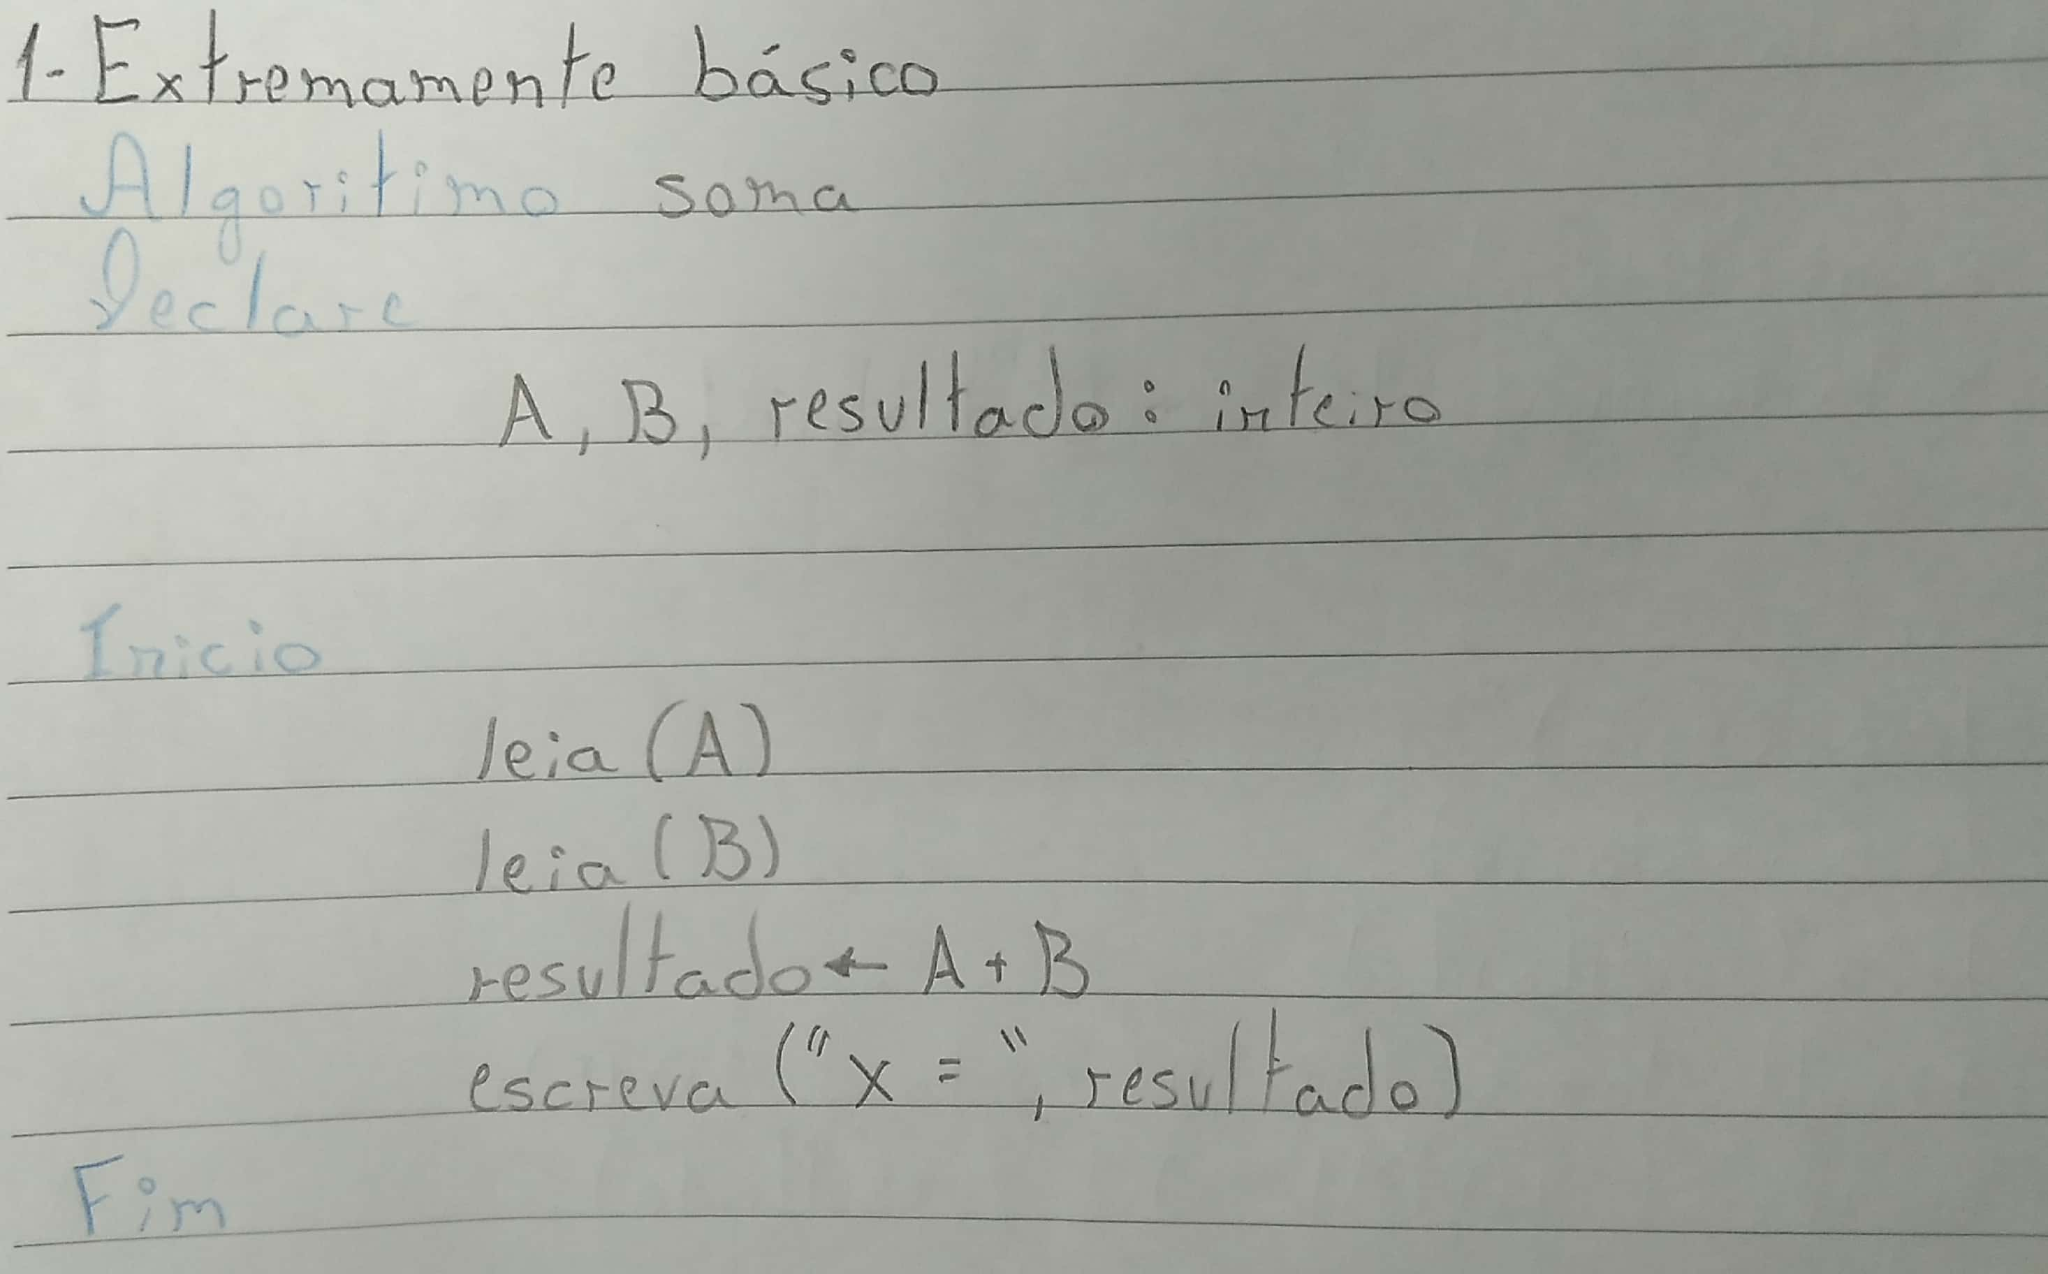 1-Extremamente básico
Algoritimo soma
Declare
A, B, resultado: inteiro
Inicio
leia (A)
leia (B)
resultado ← A + B
escreva ("x = ", resultado)
Fim